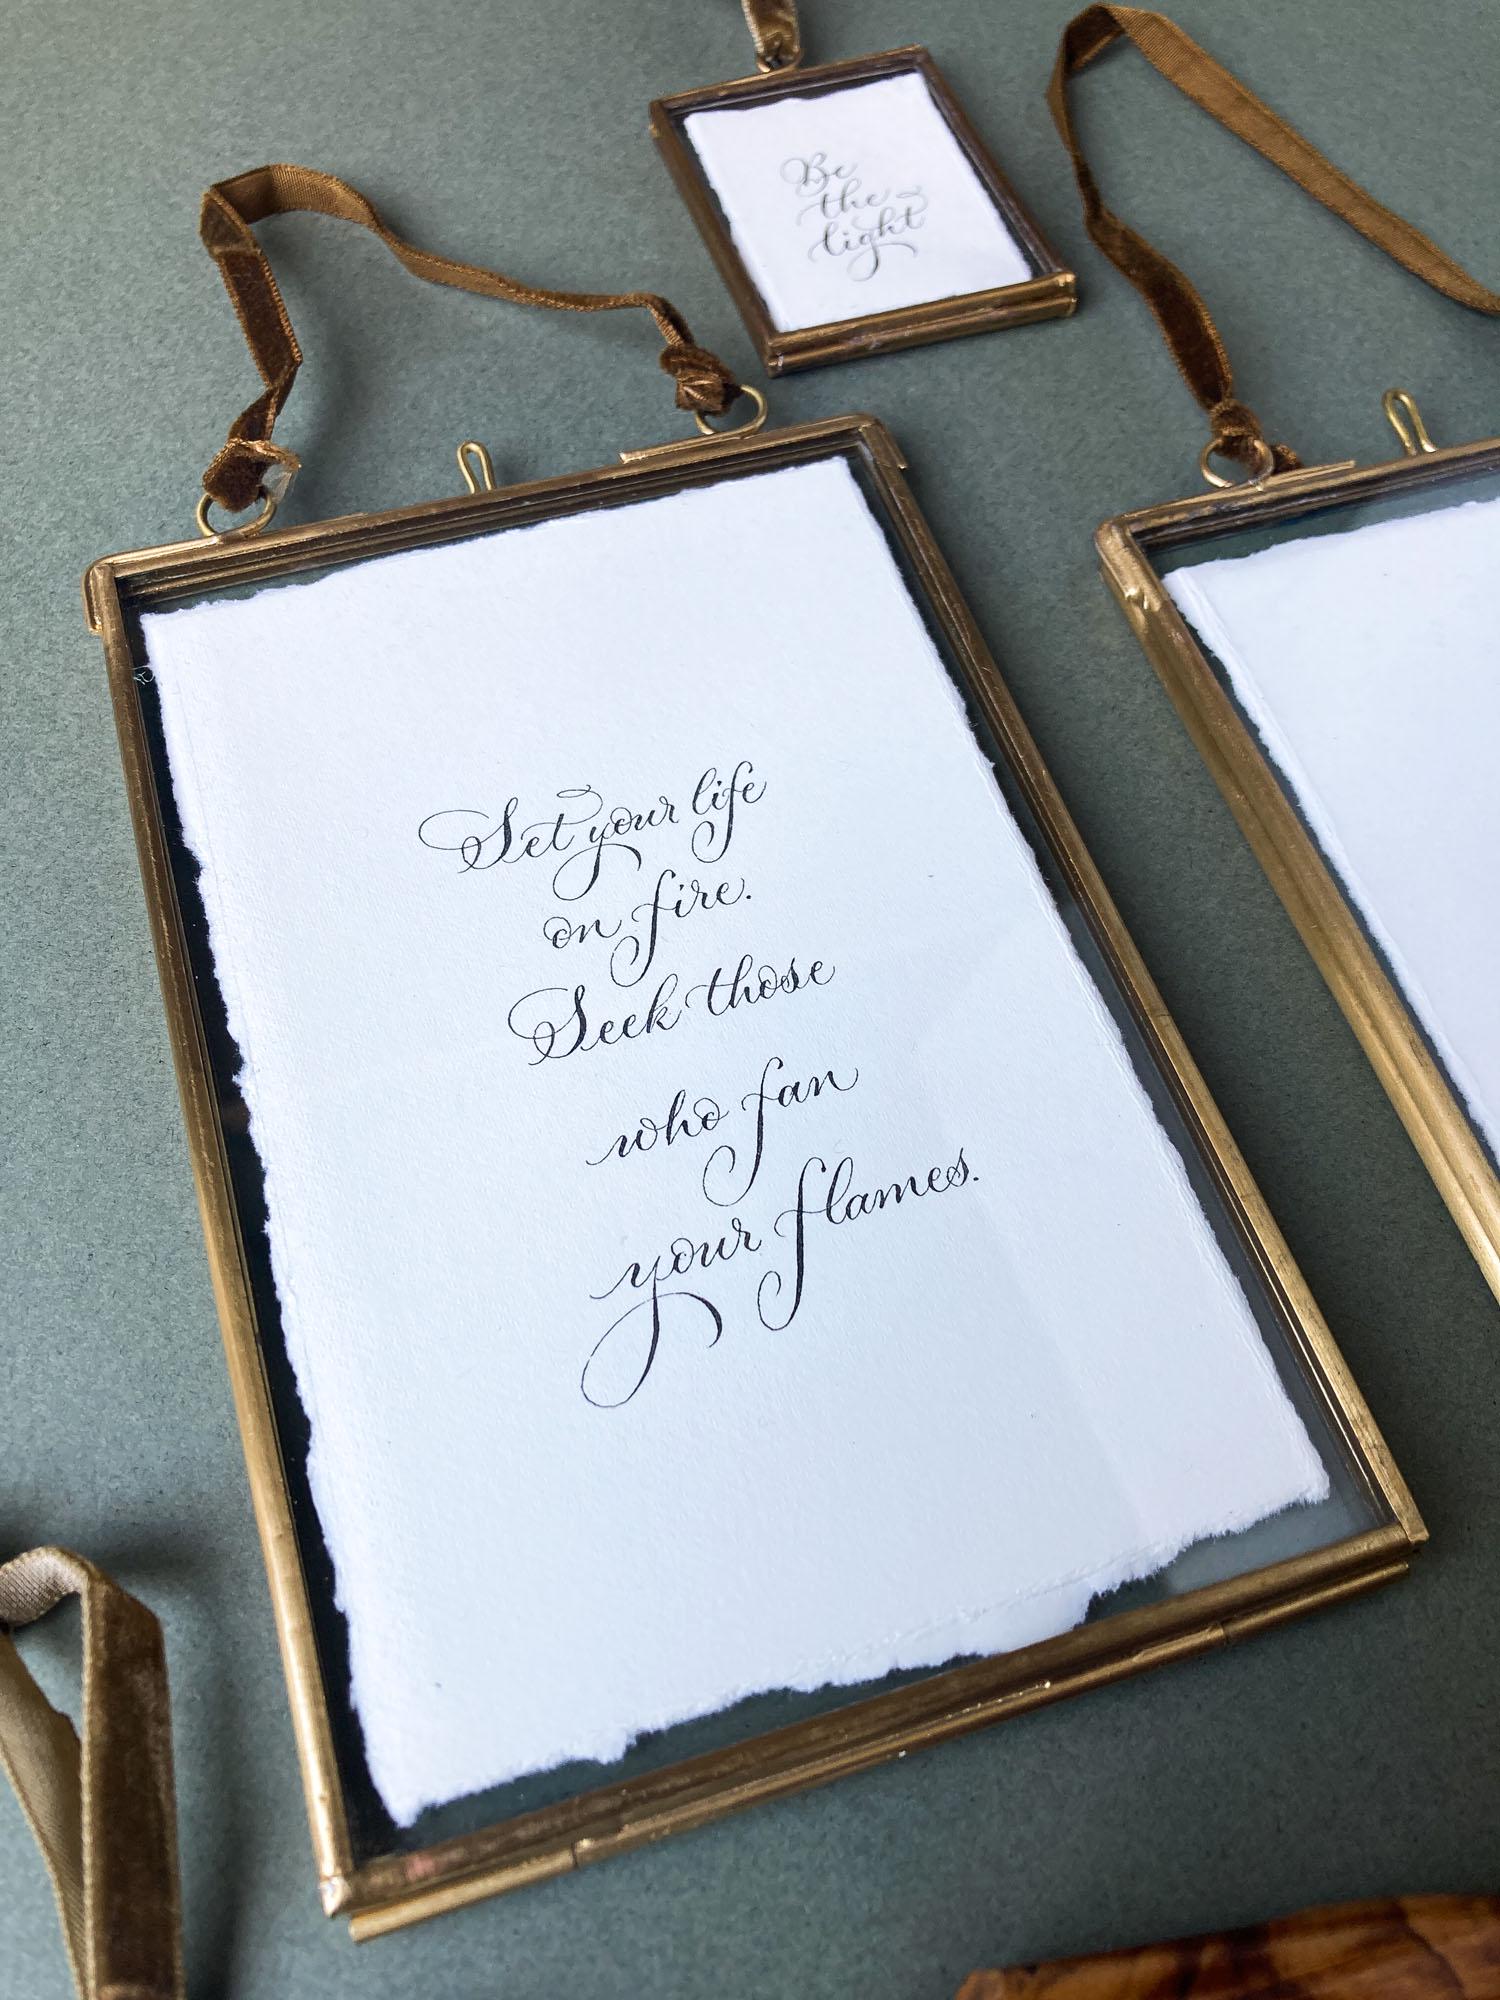 Be
the
light
Set your life
on fire.
Seek those
who fan
your flames.